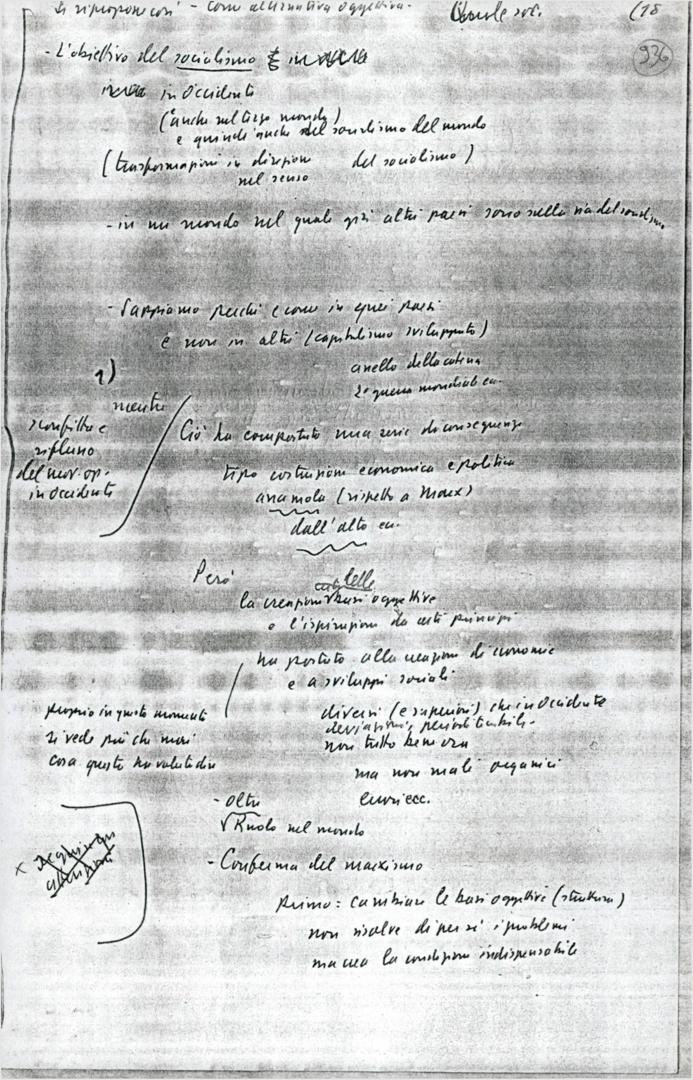 si ripropone così - come alternativa oggettiva.
(18
936
- L'obiettivo del socialismo è in
in Occidente
(anche nel terzo mondo)
e quindi anche nel socialismo del mondo
(trasformazioni in direzione del socialismo)
nel senso
- in un mondo nel quale già altri paesi sono sulla via del socialismo
- Sappiamo perché e come in quei paesi
e non in altri (capitalismo sviluppato)
1)
anello della catena
2ª guerra mondiale ecc.
mentre
sconfitta e
riflusso
del mov. op.
in occidente
Ciò ha comportato una serie di conseguenze
tipo costruzione economica e politica
anomala (rispetto a Marx)
dall'alto ecc.
Però
quelle
la creazione basi oggettive
e l'ispirazione da certi principi
ha portato alla creazione di economie
e a sviluppi sociali
proprio in questo momento
si vede più che mai
cosa questo ha voluto dire
diversi (e superiori) che in occidente
deviazioni,
non tutto bene ora
ma non mali organici
- oltre
Ruolo nel mondo
- Conferma del marxismo
primo: cambiare le basi oggettive (struttura)
non risolve di per sé i problemi
ma crea la condizione indispensabile